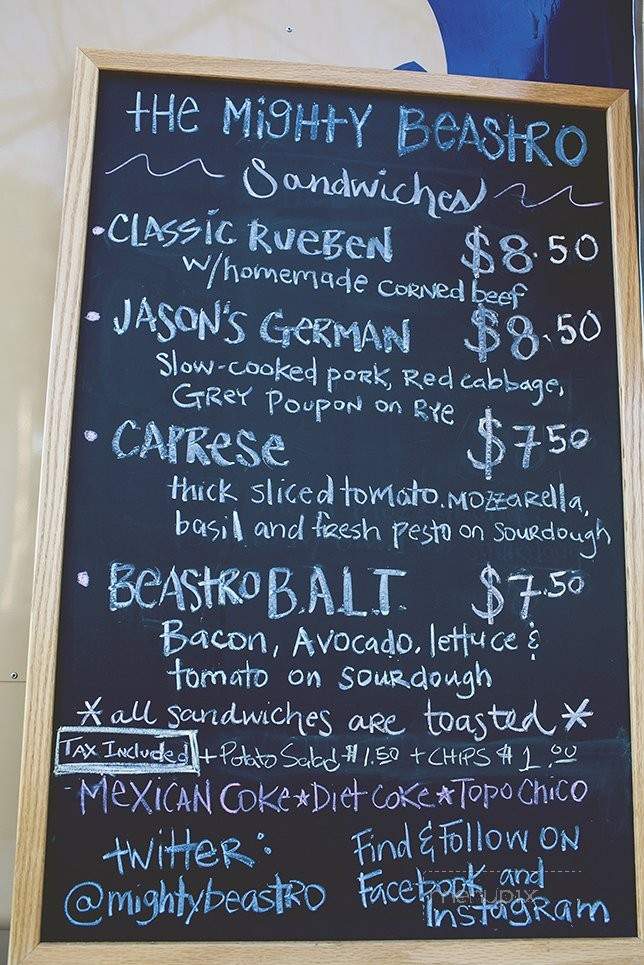 THE MIGHTY BEASTRO
Sandwiches
• CLASSIC RUEBEN $8.50
w/homemade CORNED beef
• JASON'S GERMAN $8.50
Slow-cooked pork, Red cabbage,
GREY POUPON on RYE
• CAPRESE $7.50
thick sliced tomato. MOZZARELLA,
basil and fresh pesto on sourdough
• BEASTRO B.A.L.T. $7.50
Bacon, Avocado, lettuce &
tomato on sourdough
*all sandwiches are toasted*
TAX Included + Potato Salad $1.50 + CHIPS $1.00
MEXICAN COKE★Diet COKE★TOPO CHICO
twitter:
@mightybeastro
Find & Follow ON
Facebook and
Instagram
menupix